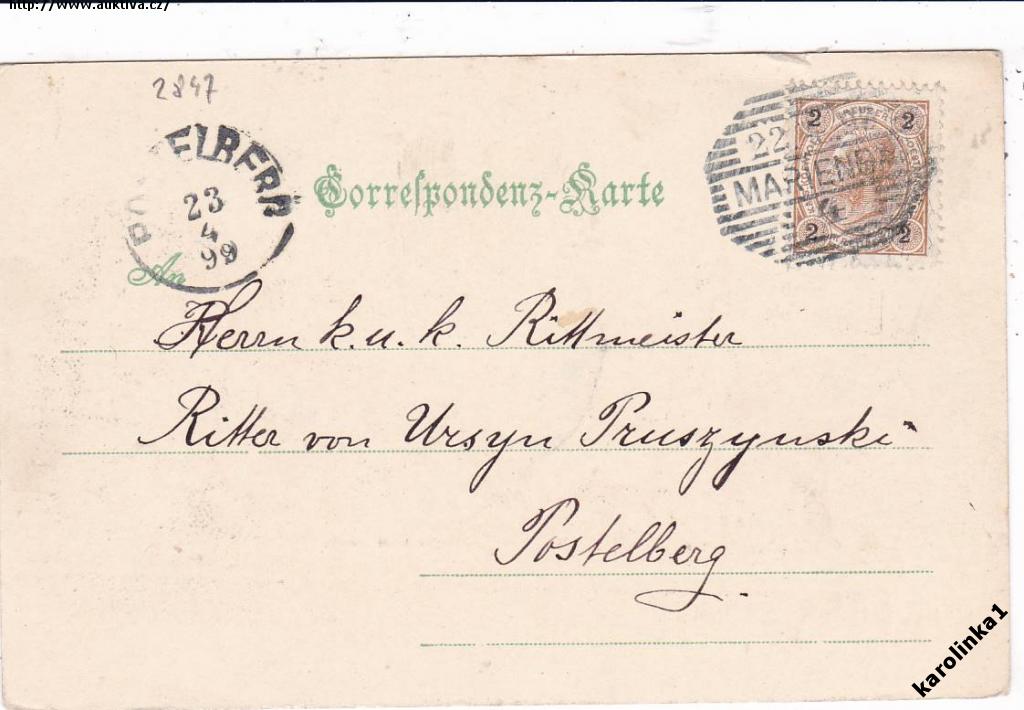 http://www.auktiva.cz/
2847
POSTELBERG
23
4
99
Correspondenz-Karte
22
MARIENBA
4
2 2
2 2
An
Herrn k. u. k. Rittmeister
Ritter von Ursyn Pruszynski
Postelberg
karolinka1